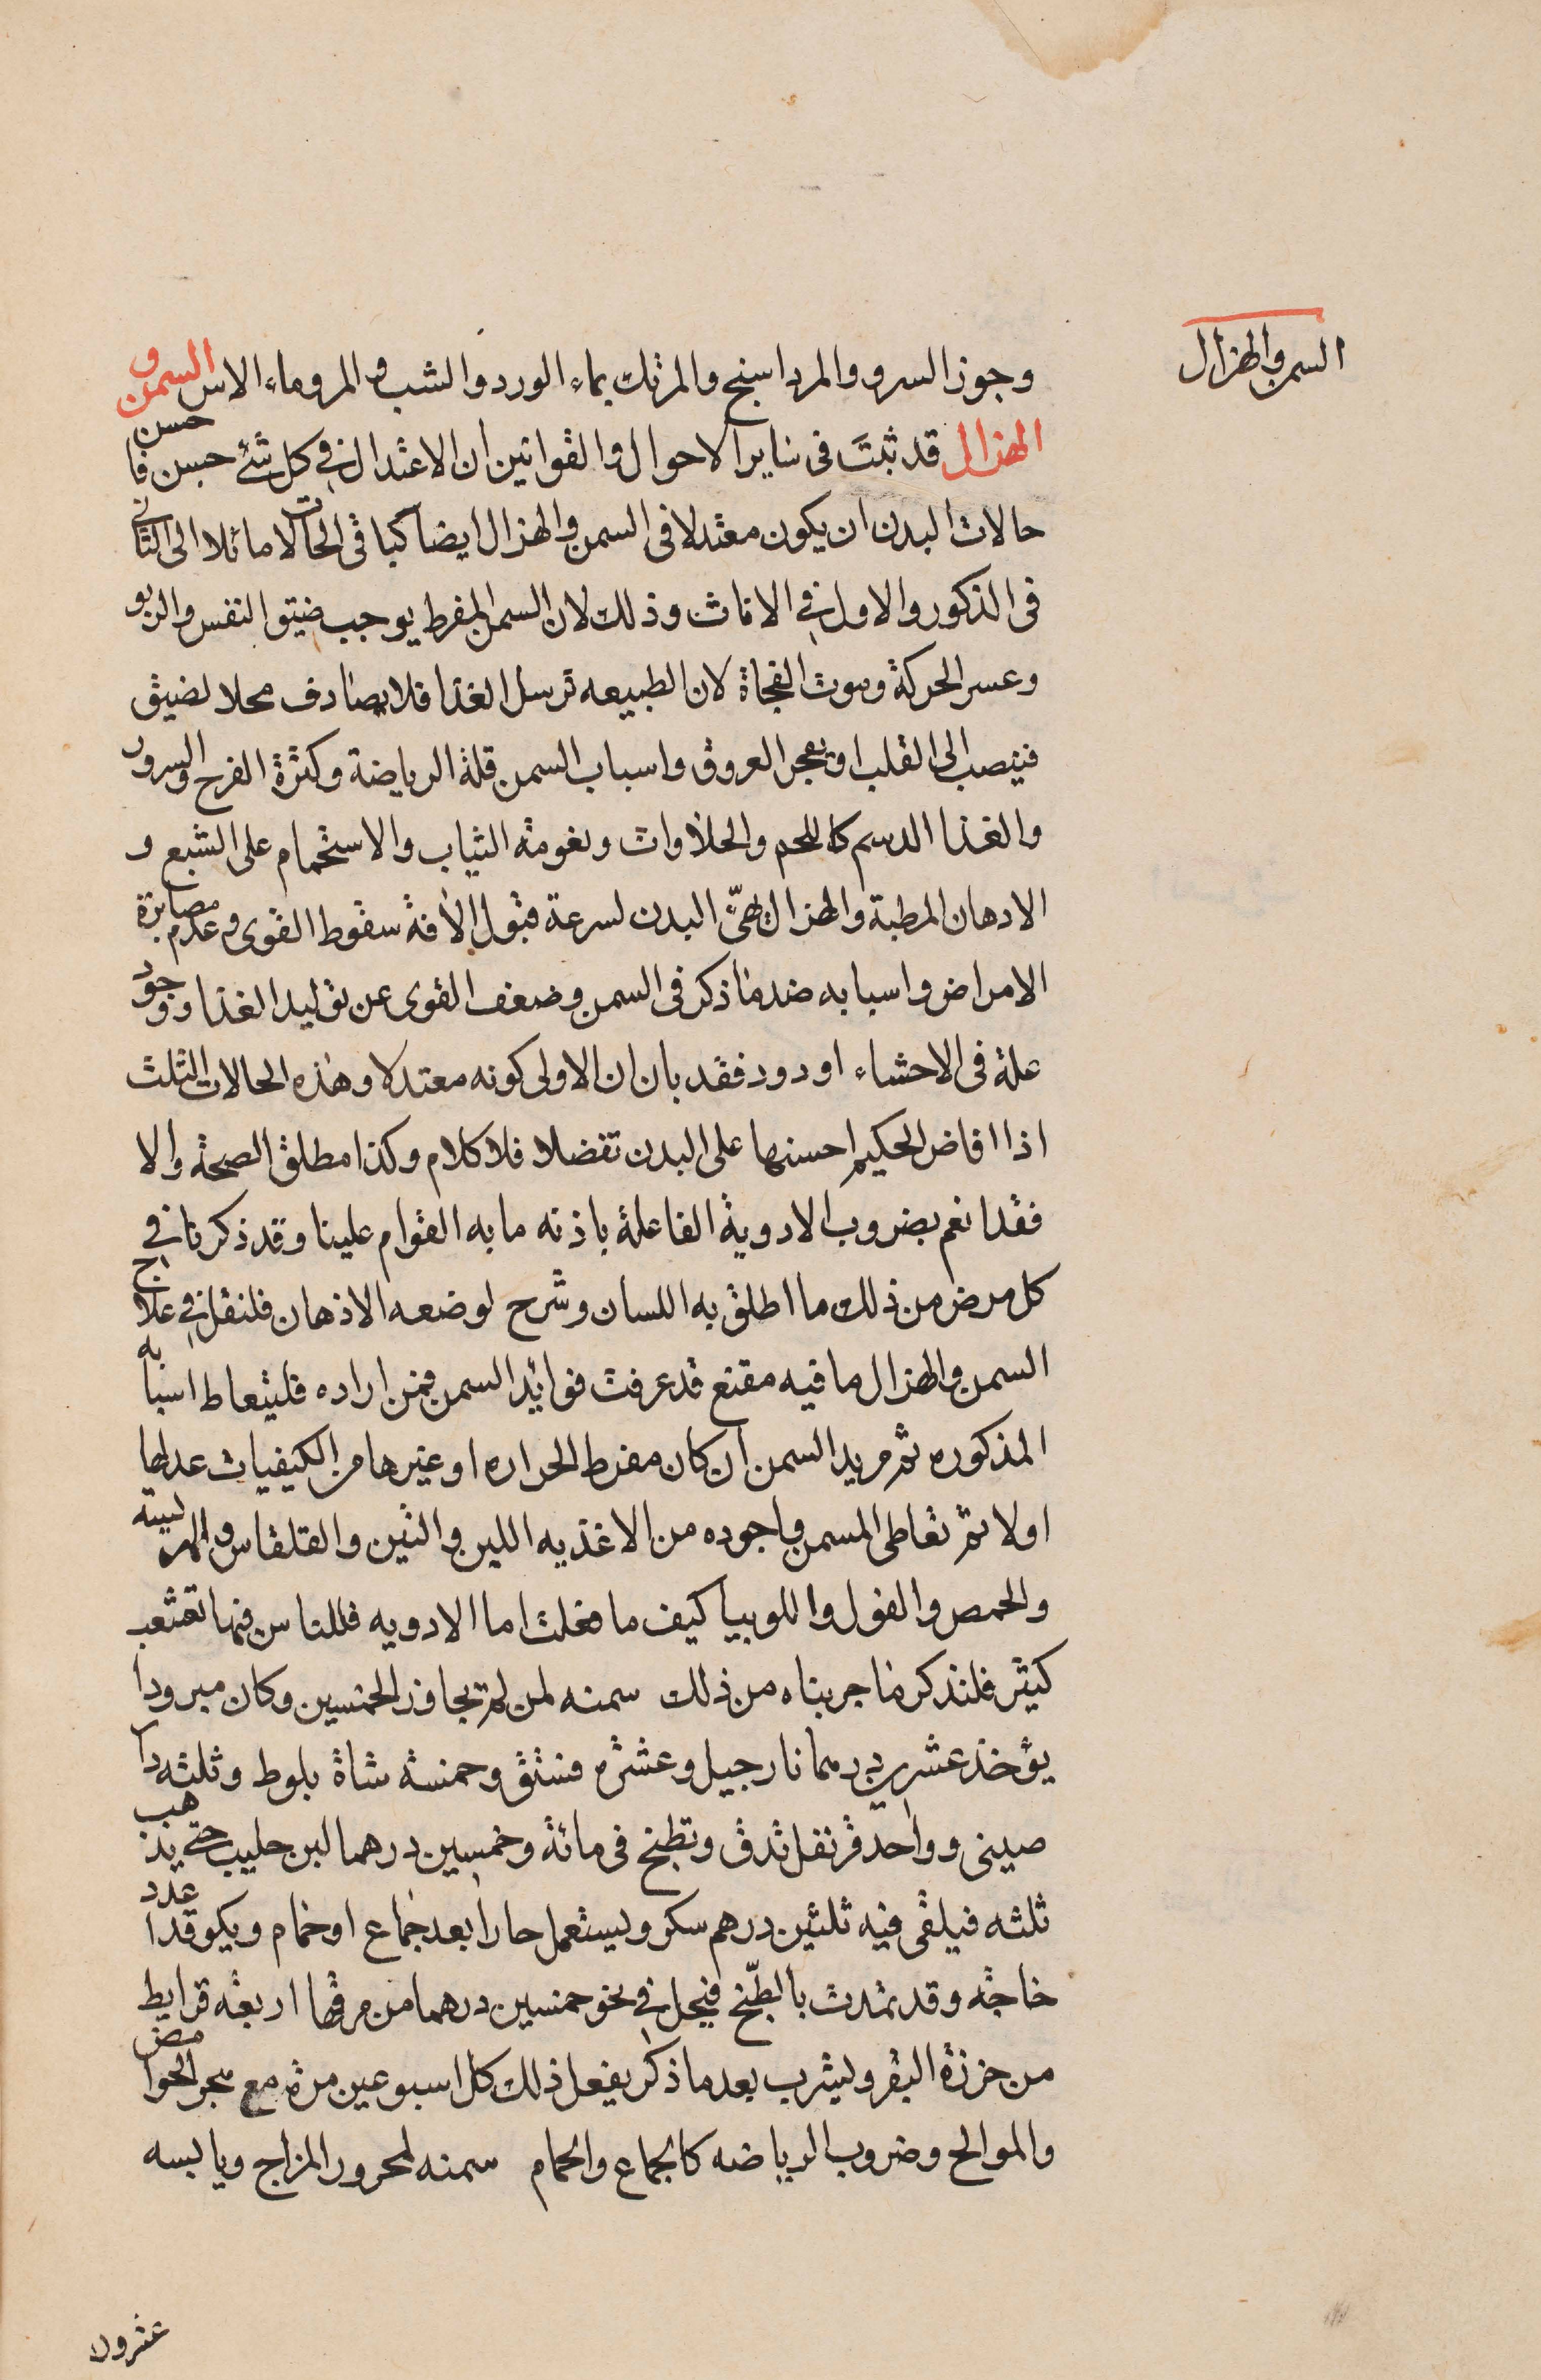 السمن والهزال
وجوز السرو والمرداسنج والمرتك بماء الورد والشب و المر وماء الاس السمن و
الهزال قد ثبت في ساير الاحوال والقوانين ان الاعتدال في كل شئ حسن حسن فا
حالات البدن ان يكون معتدلا في السمن والهزال ايضا كباقي الحالات مائلا الى الثاني
في الذكور والاول في الاناث وذلك لان السمن المفرط يوجب ضيق النفس والربو
وعسر الحركة وموت الفجاة لان الطبيعه ترسل الغذا فلا يصادف محلا لضيق
فينصب الى القلب او يفجر العروق واسباب السمن قلة الرياضة وكثرة الفرح والسرور
والغذا الدسم كاللحم والحلاوات ونعومة الثياب والاستحمام على الشبع و
الادهان المرطبة والهزال يهئ البدن لسرعة قبول الافة سقوط القوى وعدم مصابرة
الامراض واسبابه ضد ما ذكر في السمن وضعف القوى عن توليد الغذا ووجود
علة في الاحشاء او دود فقد بان ان الاولى كونه معتدلا وهذه الحالات الثلث
اذا افاض الحكيم احسنها على البدن تفضلا فلا كلام وكذا مطلق الصحة والا
فقد انعم بضروب الادوية الفاعلة باذنه ما به القوام علينا وقد ذكرنا في
كل مرض من ذلك ما اطلق به اللسان وشرح لوضعه الاذهان فلنقل في علاج
السمن والهزال ما فيه مقنع قد عرفت فوائد السمن فمن اراده فليتعاط اسبابه
المذكوره ثم مريد السمن ان كان مفرط الحراره او غيرها من الكيفيات عدلها
اولا ثم تعاطى المسمن واجوده من الاغذيه اللبن والتين والقلقاس والهريسه
والحمص والفول واللوبيا كيف ما فعلت اما الادويه فللناس فيها تشعب
كثير فلنذكر ما جربناه من ذلك سمنه لمن لم يجاوز الخمسين وكان مبرودا
يؤخذ عشرين درهما نارجيل وعشره فستق وخمسة شاة بلوط وثلثه دا
صيني وواحد قرنفل تدق وتطبخ في مائة وخمسين درهما لبن حليب حتى يذهب
ثلثه فيلقى فيه ثلثين درهم سكر ويستعمل حارا بعد جماع او حمام ويكو قد اعدد
خاجة وقد تمدت بالطبخ فيحل في نحو خمسين درهما من مرقها اربعة قرايط
من خرزة البقر ويشرب بعد ما ذكر يفعل ذلك كل اسبوعين مرة مع هجر الحوامض
والموالح وضروب الرياضه كالجماع والحمام سمنه لمحرور المزاج ويابسه
عشرون